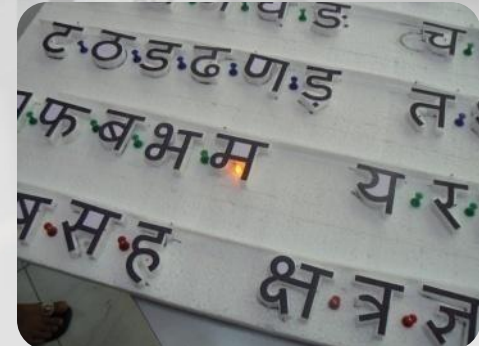 ङ च
ट ठ ड ढ ण ड़ त
फ ब भ म य र
ष स ह क्ष त्र ज्ञ